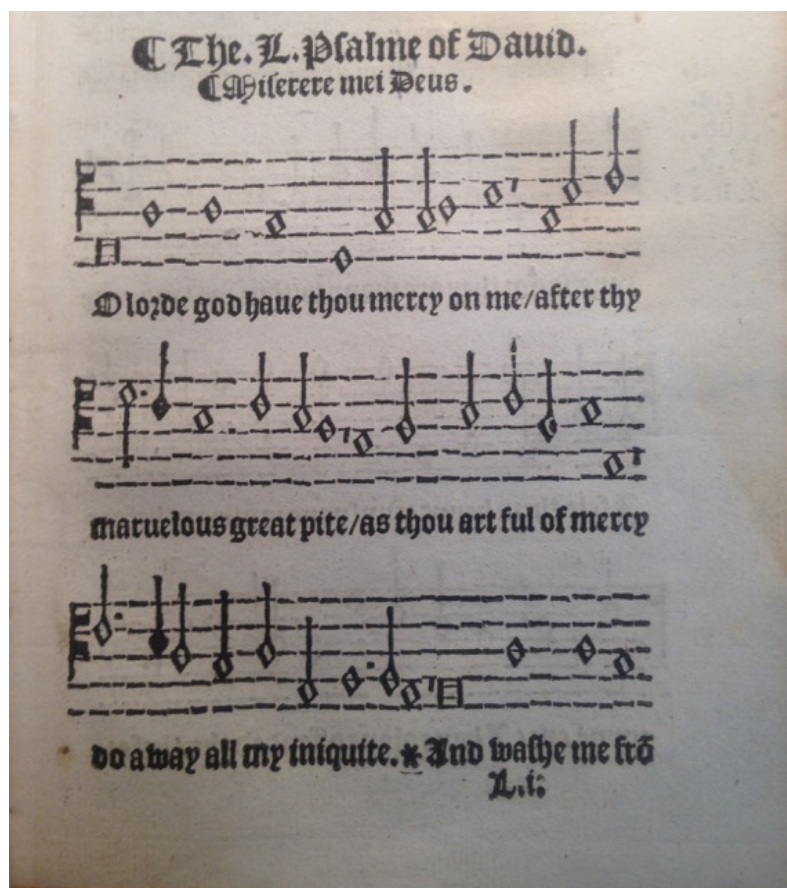 ¶ The. L. Psalme of Dauid.
¶ Miserere mei Deus.
O lorde god haue thou mercy on me/after thy
maruelous great pite/as thou art ful of mercy
do away all my iniquite.* And washe me frō
L.i: